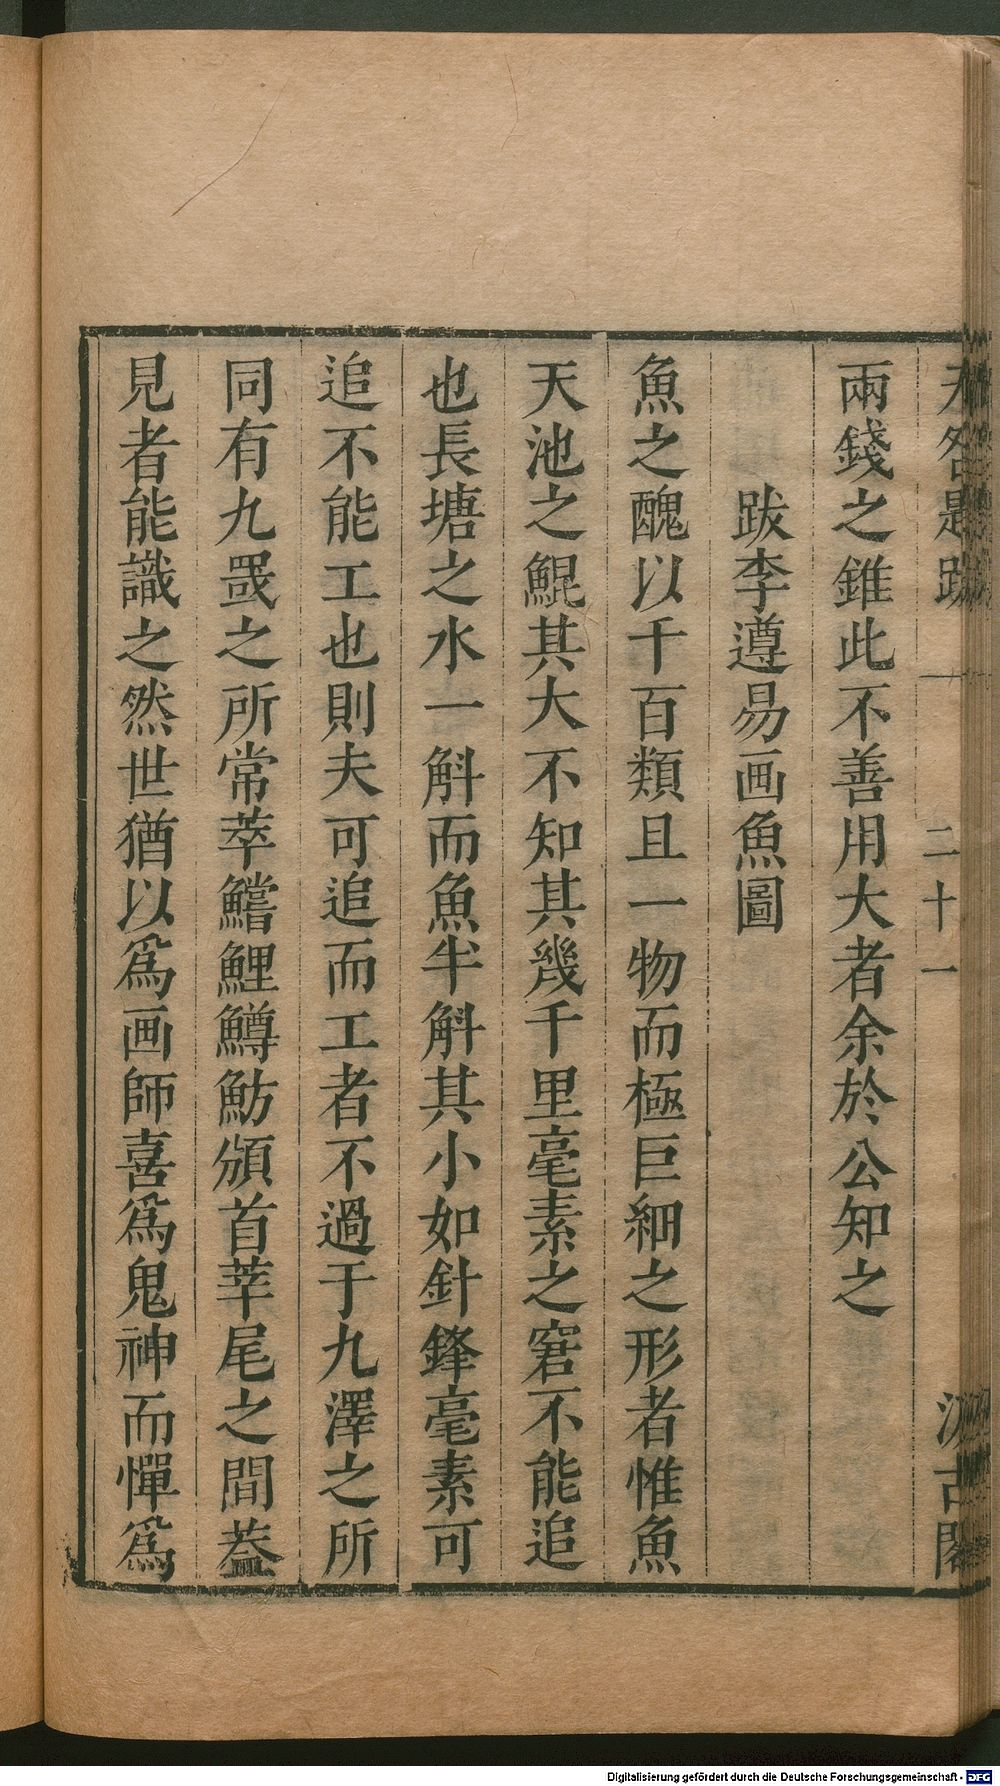 无咎題跋 二十一 汲古閣
兩錢之錐此不善用大者余於公知之
跋李遵易画魚圖
魚之醜以千百類且一物而極巨細之形者惟魚
天池之鯤其大不知其幾千里毫素之窘不能追
也長塘之水一斛而魚半斛其小如針鋒毫素可
追不能工也則夫可追而工者不過于九澤之所
同有九罭之所常萃鱨鯉鱒魴頒首莘尾之間蓋
見者能識之然世猶以爲画師喜爲鬼神而憚爲
Digitalisierung gefördert durch die Deutsche Forschungsgemeinschaft - DFG